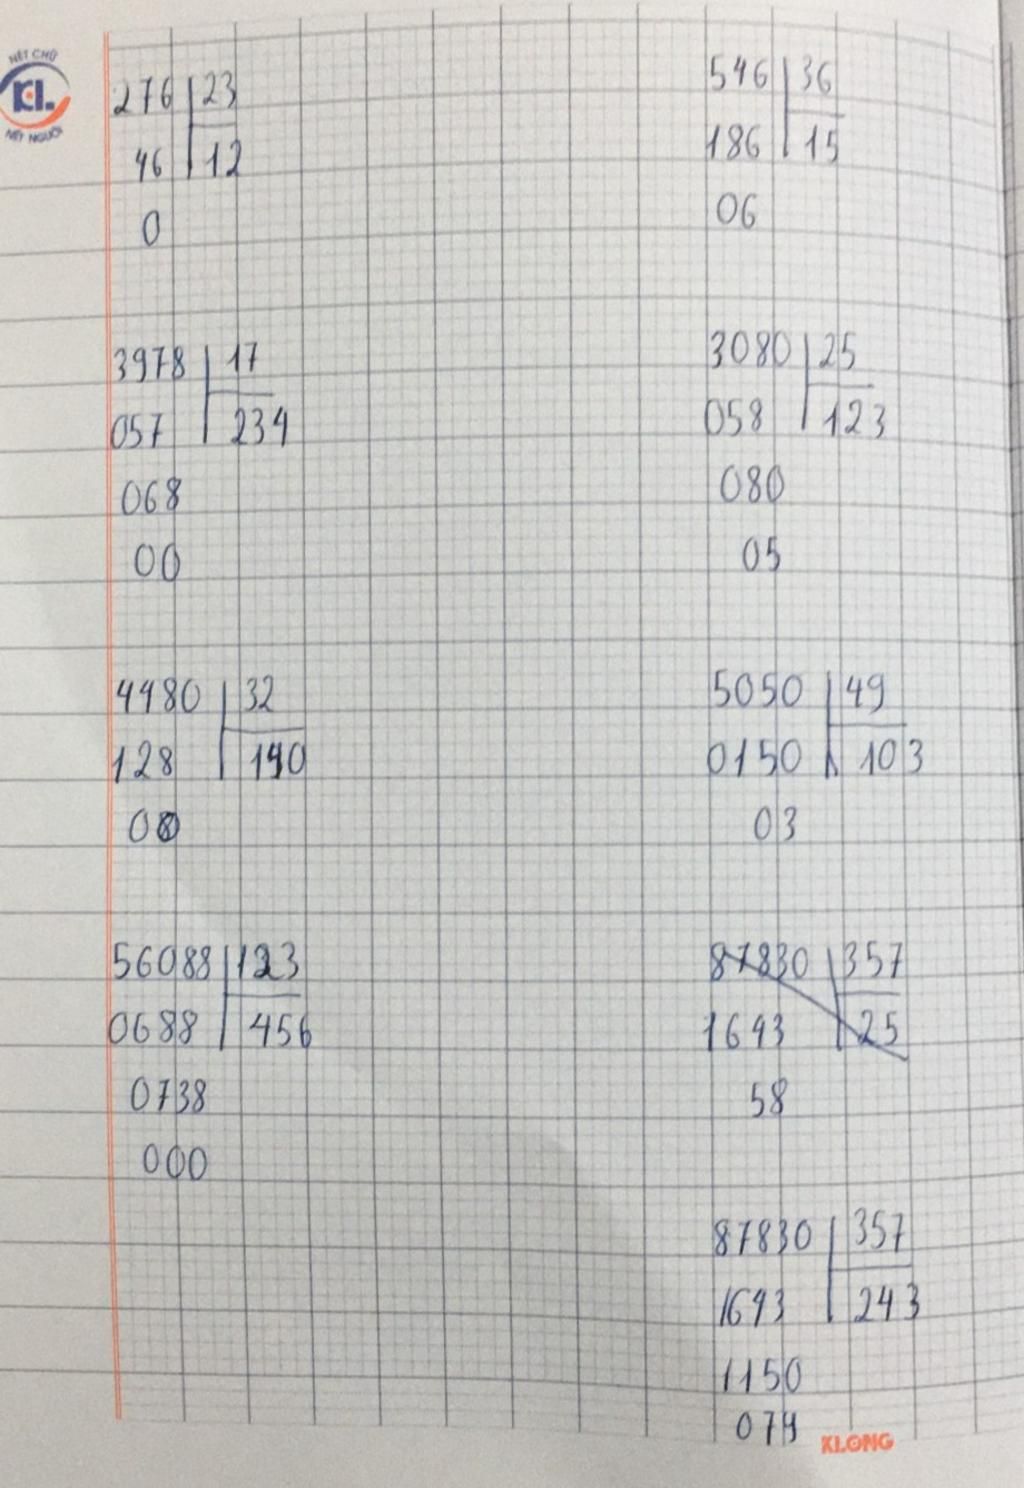 NÉT CHỮ
KL
NÉT NGƯỜI
276 23
46 12
0
546 36
186 15
06
3978 17
057 234
068
00
3080 25
058 123
080
05
4480 32
128 140
00
5050 49
0150 103
03
56088 123
0688 456
0738
000
87830 357
1643 25
58
87830 357
1643 243
1150
079
KLONG